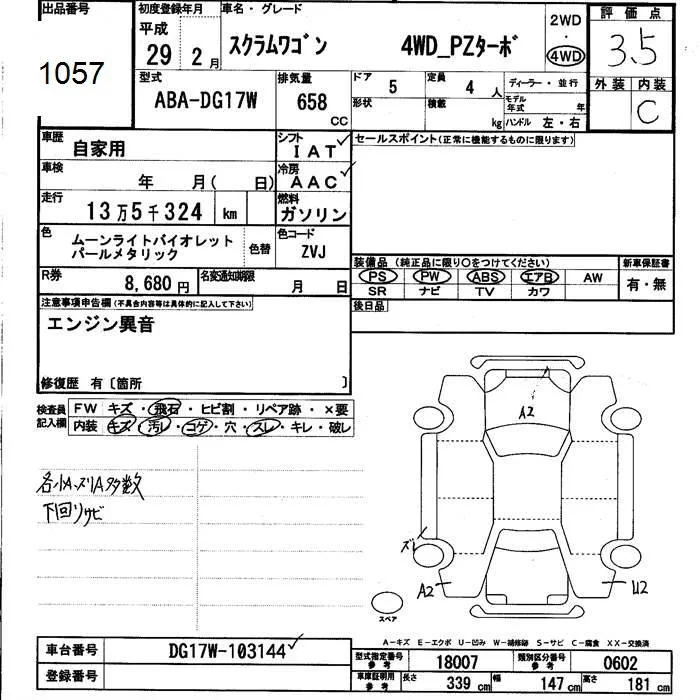 出品番号 初度登録年月 車名・グレード 2WD 評価点
1057 平成 29 2月 スクラムワゴン 4WD_PZターボ ・ 4WD 3.5
型式 排気量 ドア 5 定員 4 人 ディーラー・並行 外装 内装
ABA-DG17W 658 CC 形状 積載 kg モデル年式 年 ハンドル 左・右 C
車歴 自家用 シフト IAT セールスポイント(正常に機能するものに限ります)
車検 年 月( 日) 冷房 AAC
走行 13万5千324 km 燃料 ガソリン
色 ムーンライトバイオレット 色替 色コード
パールメタリック ZVJ
装備品(純正品に限り○をつけてください) 新車保証書
R券 8,680円 名変通知期限 月 日 PS PW ABS エアB AW 有・無
SR ナビ TV カワ
注意事項申告欄(不具合内容等は具体的に記入して下さい) 後日品
エンジン異音
修復歴 有〔箇所 〕
検査員 FW キズ・飛石・ヒビ割・リペア跡・×要
記入欄 内装 キズ・汚レ・コゲ・穴・スレ・キレ・破レ
A2
各小A.ズリA多数
下回りサビ
ズレ
A2 U2
スペア
A-キズ E-エクボ U-凹み W-補修跡 S-サビ C-腐食 XX-交換済
車台番号 DG17W-103144 型式指定番号 参考 18007 類別区分番号 参考 0602
登録番号 車庫証明用 参考 長さ 339cm 幅 147cm 高さ 181cm